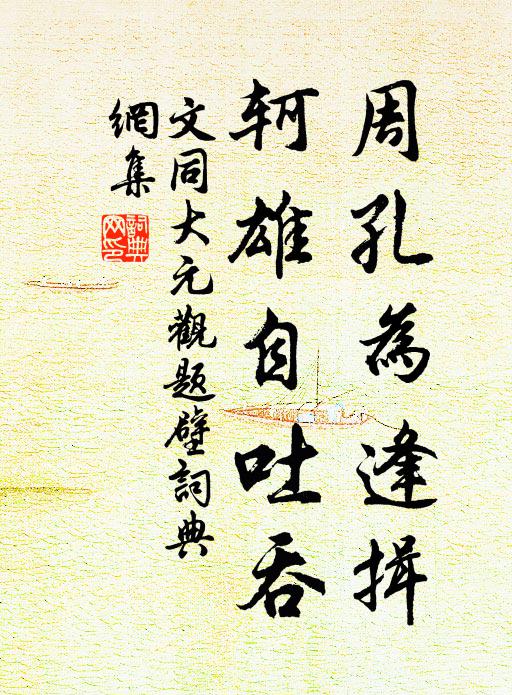 周孔為逢揖
軻雄自吐吞
文同大元觀題壁詞典
網集
詞典
網印